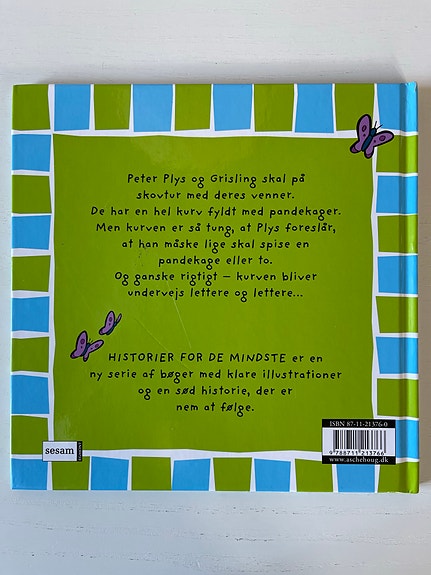 Peter Plys og Grisling skal på
skovtur med deres venner.
De har en hel kurv fyldt med pandekager.
Men kurven er så tung, at Plys foreslår,
at han måske lige skal spise en
pandekage eller to.
Og ganske rigtigt – kurven bliver
undervejs lettere og lettere...
HISTORIER FOR DE MINDSTE er en
ny serie af bøger med klare illustrationer
og en sød historie, der er
nem at følge.
sesam
ISBN 87-11-21376-0
9 788711 213766
www.aschehoug.dk